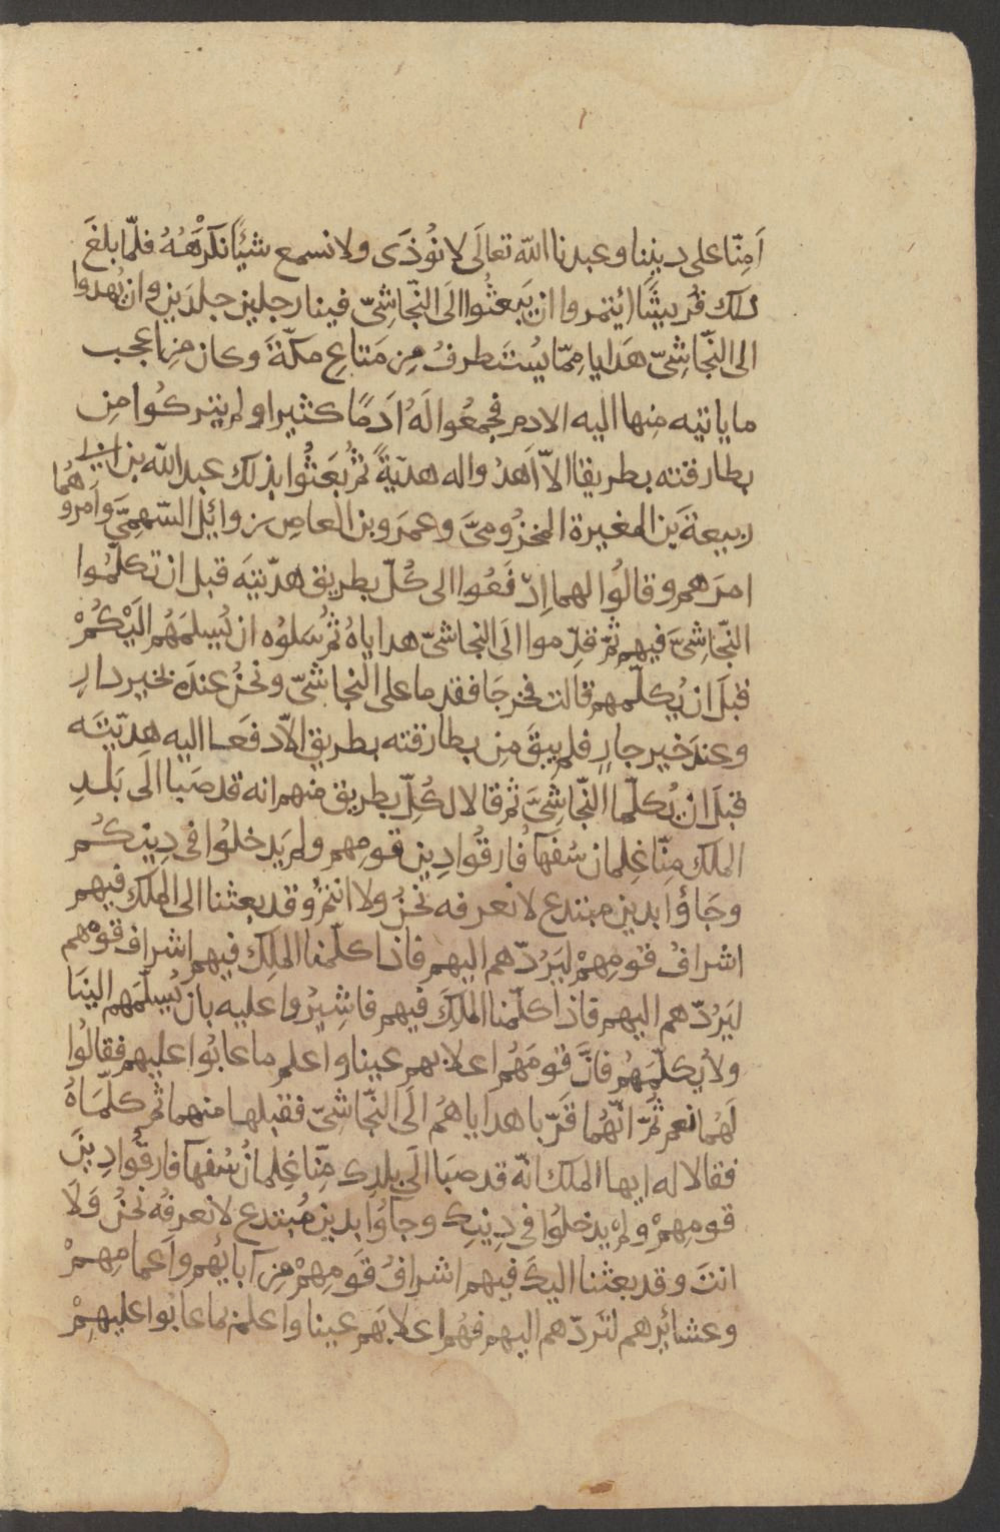 اَمِنّا على ديننا وعبدنا الله تعالَى لا نُوذَى ولا نسمع شيئًا نَكْرَهُهُ فلمّا بلغَ
ذلك قُريشًا ائتمروا ان يَبعثُوا الَى النّجاشِىّ فينا رجلين جلدَين وان يُهدوا
الى النّجاشِىّ هَدايا مِمّا يُستَطرفُ مِن مَتاعِ مكّةَ وكان مِن اعجب
ما ياتيه مِنها اليه الادم فجمعُوا لَهُ اَدَمًا كثيرا ولم يتركُوا مِن
بطارقته بطريقا الاّ اَهدُوا له هديّةً ثمّ بَعَثُوا بذلك عبد الله بن ابى
ربيعةَ بن المغيرة المخزُومىَّ وعمرَو بن العاصِ بن وائِل السّهمِىَّ وَامَروهُما
امرَهم وقالُوا لهما اِدّفَعُوا الى كُلّ بطريق هديّتهَ قبل ان تكلّمُوا
النّجاشِىَّ فيهم ثمّ قدِّموا الَى النجاشىّ هداياهُ ثمّ سَلوُه ان يُسلمَهُم الَيْكُمْ
قبلَ ان يُكلّمهم قالت فخرجَا فقدما على النجاشىّ ونحنُ عندَه بخير دارٍ
وعندَ خير جارٍ فلم يبقَ مِن بطارقته بطريق الاّ دفعَا اليه هديّتَه
قبلَ ان يُكلّما النّجاشِىَّ ثم قالا لكُلّ بطريق منهم انه قد صَبا الَى بَلَدِ
الملك مِنّا غِلمان سُفَهآُ فارقُوا دِين قومِهم ولم يَدخلوُا فى دِينكُم
وجَاؤُا بدين مبتدع لا نعرفه نحنُ ولا انتمُ وقد بعثنا الى الملك فيهم
اشرافُ قومِهمْ ليَرُدّهم اليهم فاذا كلّمنا الملِك فيهم اشراف قومهم
ليَرُدّهم اليهم فاذا كلّمنا الملِكَ فيهم فاشِيرُوا عليه بان يُسلّمَهم الينَا
ولا يُكلّمَهُم فانَّ قومَهُم اعلا بهم عينا واعلم ما عابُوا عليهم فقالُوا
لَهُما نعم ثمَّ انّهُما قَرّبا هداياهُم الَى النّجاشىّ فقبلها منهما ثم كلّمَاهُ
فقالا له ايها الملك انّه قد صبَا الَى بلدِك مِنّا غِلمانُ سُفهآ فارقُوا دِينَ
قومِهمْ ولمْ يدخلُوا فى دِينِك وجآؤا بدين مُبتدع لا نعرفُه نحنُ وَلَا
انتَ وقد بعثنا اليكَ فيهم اشرافُ قَومِهمْ مِن آبائِهم واَعمامِهمْ
وعشائِرهم لتَردّهم اليهم فهُم اعلا بَهم عينا واعلم بما عابُوا عليهِمْ